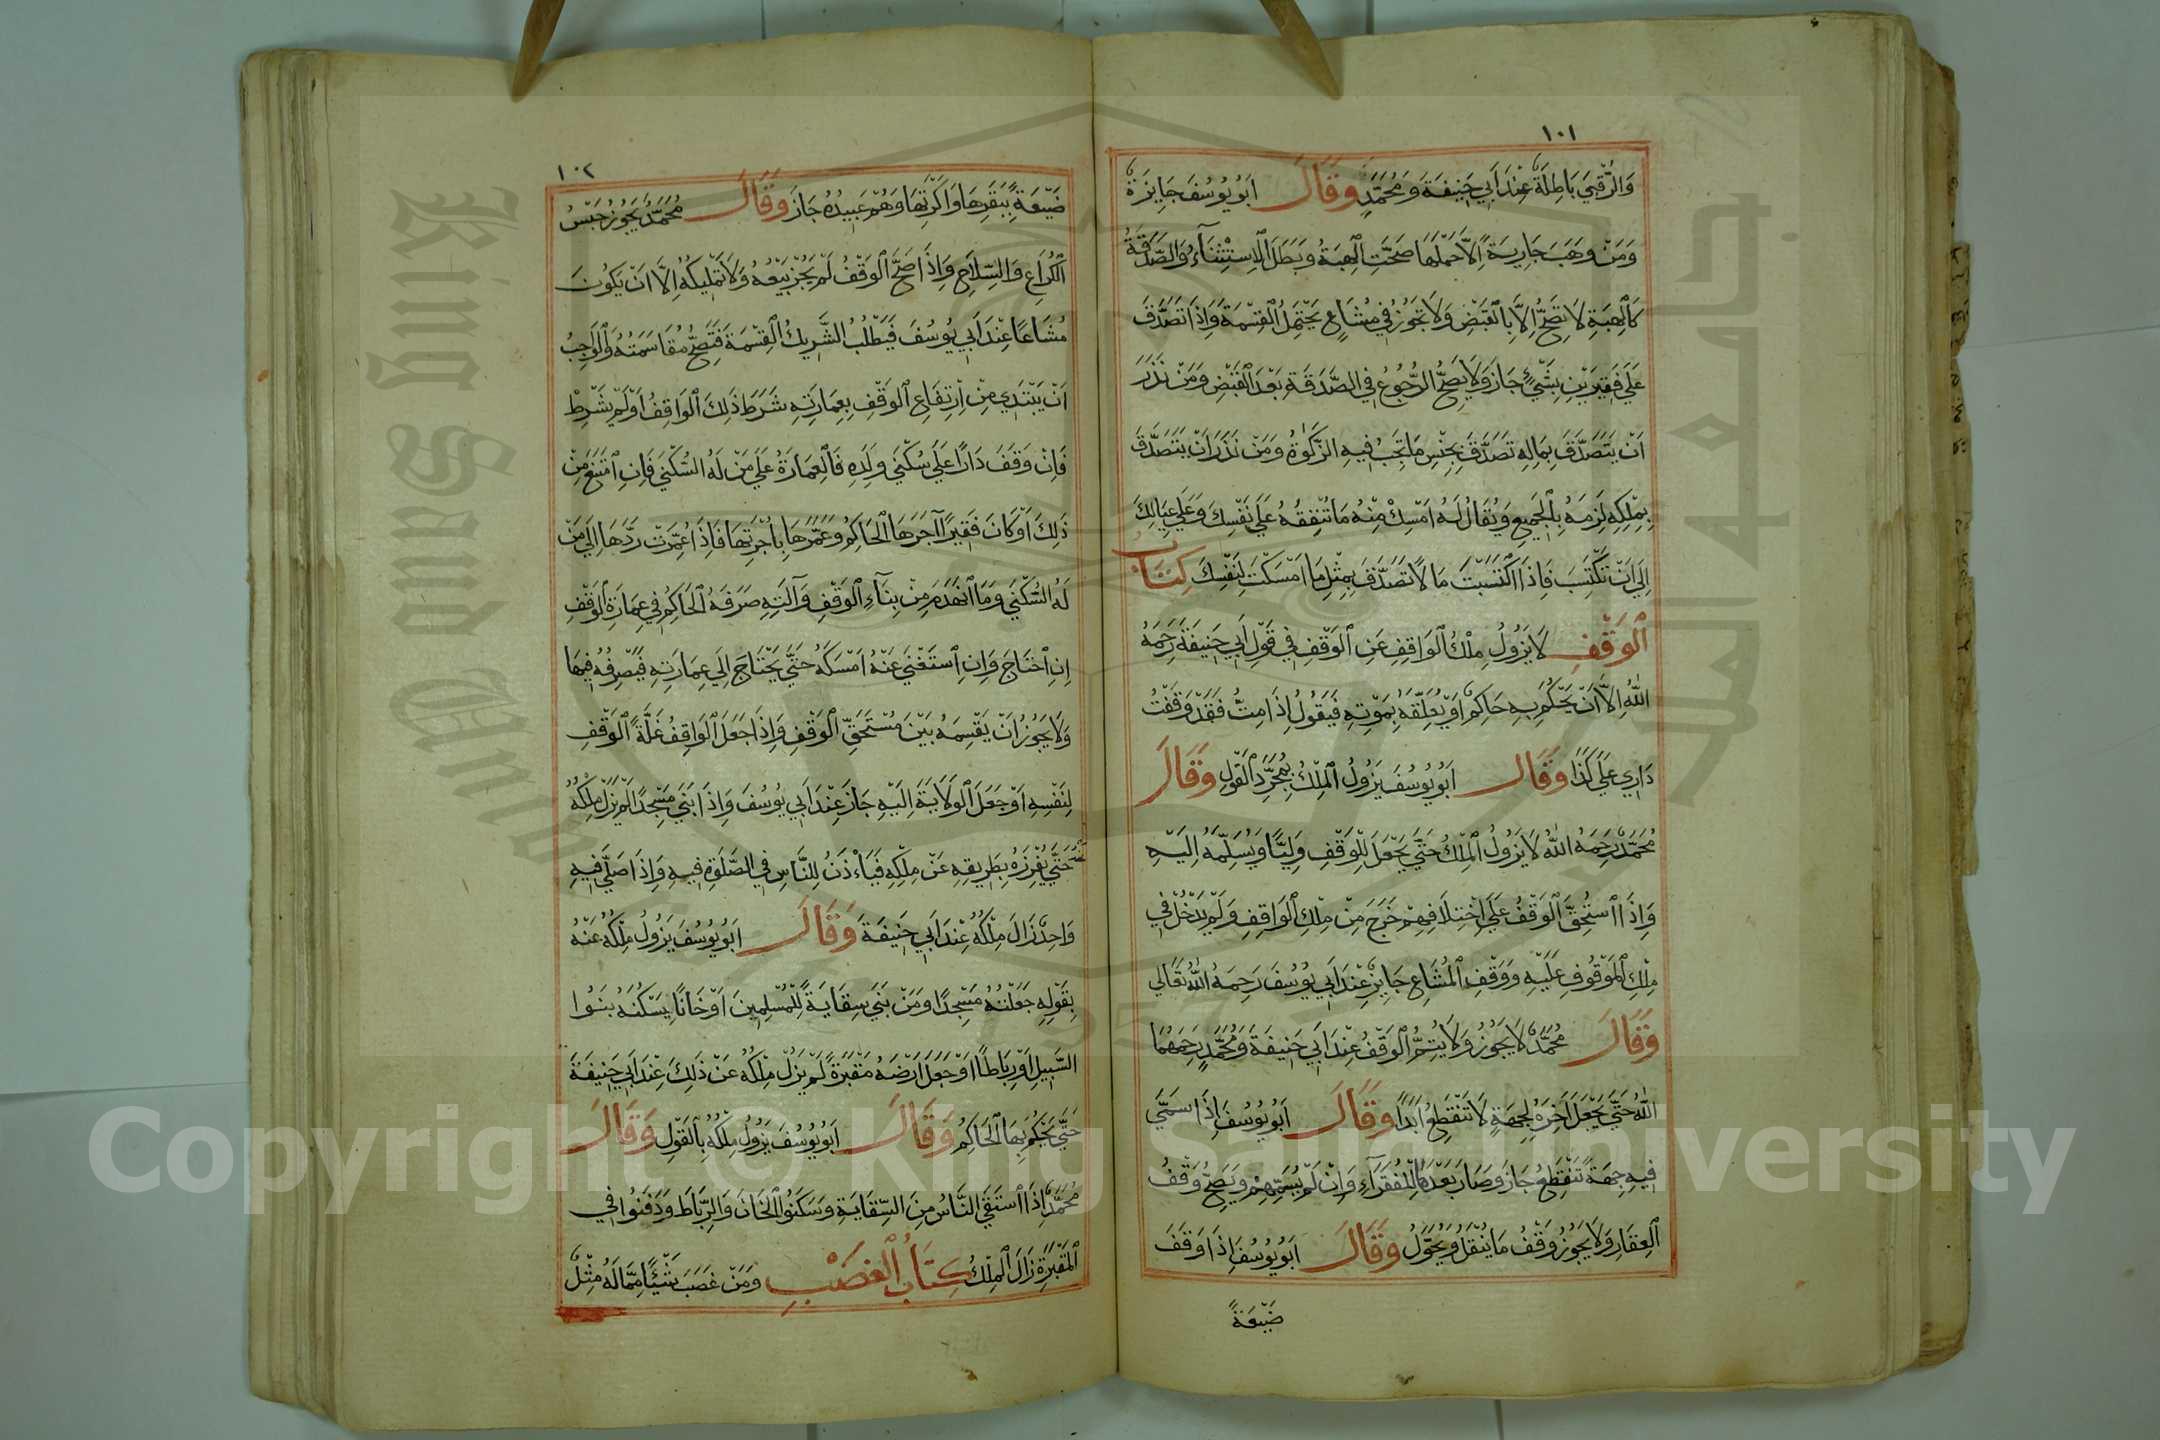 ١٠١
وَالرُّقْبَى بَاطِلَةٌ عِنْدَ اَبِي حَنِيفَةَ وَ مُحَمَّدٍ وَقَالَ اَبُو يُوسُفَ جَايِزَةٌ
وَمَنْ وَهَبَ جَارِيَةً اِلَّا حَمْلَهَا صَحَّتِ الْهِبَةُ وَبَطَلَ الْاِسْتِثْنَآءُ وَالصَّدَقَةُ
كَالْهِبَةِ لَا تَصِحُّ اِلَّا بِالْقَبْضِ وَلَا تَجُوزُ فِي مُشَاعٍ يَحْتَمِلُ الْقِسْمَةَ وَاِذَا تَصَدَّقَ
عَلَى فَقِيرَيْنِ بِشَيْءٍ جَازَ وَلَا يَصِحُّ الرُّجُوعُ فِي الصَّدَقَةِ بَعْدَ الْقَبْضِ وَمَنْ نَذَرَ
اَنْ يَتَصَدَّقَ بِمَالِهِ تَصَدَّقَ بِجِنْسِ مَا يَجِبُ فِيهِ الزَّكٰوةُ وَمَنْ نَذَرَ اَنْ يَتَصَدَّقَ
بِمِلْكِهِ لَزِمَهُ بِالْجَمِيعِ وَيُقَالُ لَهُ اَمْسِكْ مِنْهُ مَا تُنْفِقُهُ عَلَى نَفْسِكَ وَعَلَى عِيَالِكَ
اِلَى اَنْ تَكْتَسِبَ فَاِذَا اكْتَسَبْتَ مَالًا تَصَدَّقْ بِمِثْلِ مَا اَمْسَكْتَ لِنَفْسِكَ كِتَابُ
الْوَقْفِ لَا يَزُولُ مِلْكُ الْوَاقِفِ عَنِ الْوَقْفِ فِي قَوْلِ اَبِي حَنِيفَةَ رَحِمَهُ
اللهُ اِلَّا اَنْ يَحْكُمَ بِهِ حَاكِمٌ اَوْ يُعَلِّقَهُ بِمَوْتِهِ فَيَقُولُ اِذَا مِتُّ فَقَدْ وَقَفْتُ
دَارِي عَلَى كَذَا وَقَالَ اَبُو يُوسُفَ يَزُولُ الْمِلْكُ بِمُجَرَّدِ الْقَوْلِ وَقَالَ
مُحَمَّدٌ رَحِمَهُ اللهُ لَا يَزُولُ الْمِلْكُ حَتَّى يَجْعَلَ لِلْوَقْفِ وَلِيًّا وَيُسَلِّمَهُ اِلَيْهِ
وَاِذَا اسْتُحِقَّ الْوَقْفُ عَلَى اخْتِلَافِهِمْ خَرَجَ مِنْ مِلْكِ الْوَاقِفِ وَلَمْ يَدْخُلْ فِي
مِلْكِ الْمَوْقُوفِ عَلَيْهِ وَوَقْفُ الْمُشَاعِ جَايِزٌ عِنْدَ اَبِي يُوسُفَ رَحِمَهُ اللهُ تَعَالَى
وَقَالَ مُحَمَّدٌ لَا يَجُوزُ وَلَا يَتِمُّ الْوَقْفُ عِنْدَ اَبِي حَنِيفَةَ وَمُحَمَّدٍ رَحِمَهُمَا
اللهُ حَتَّى يَجْعَلَ اٰخِرَهُ لِجِهَةٍ لَا تَنْقَطِعُ اَبَدًا وَقَالَ اَبُو يُوسُفَ اِذَا سَمَّى
فِيهِ جِهَةً تَنْقَطِعُ جَازَ وَصَارَ بَعْدَهَا لِلْفُقَرَآءِ وَاِنْ لَمْ يُسَمِّهِمْ وَيَصِحُّ وَقْفُ
الْعِقَارِ وَلَا يَجُوزُ وَقْفُ مَا يُنْقَلُ وَيُحَوَّلُ وَقَالَ اَبُو يُوسُفَ اِذَا وَقَفَ
ضَيْعَةً
١٠٢
ضَيْعَةً بِبَقَرِهَا وَاَكَرَتِهَا وَهُمْ عَبِيدُهُ جَازَ وَقَالَ مُحَمَّدٌ يَجُوزُ حَبْسُ
الْكُرَاعِ وَالسِّلَاحِ وَاِذَا صَحَّ الْوَقْفُ لَمْ يَجُزْ بَيْعُهُ وَلَا تَمْلِيكُهُ اِلَّا اَنْ يَكُونَ
مُشَاعًا عِنْدَ اَبِي يُوسُفَ فَيَطْلُبُ الشَّرِيكُ الْقِسْمَةَ فَتَصِحُّ مُقَاسَمَتُهُ وَالْوَاجِبُ
اَنْ يَبْتَدِيَ مِنْ اِرْتِفَاعِ الْوَقْفِ بِعِمَارَتِهِ شَرَطَ ذَلِكَ الْوَاقِفُ اَوْ لَمْ يَشْرِطْ
فَاِنْ وَقَفَ دَارًا عَلَى سُكْنَى وَلَدِهِ فَالْعِمَارَةُ عَلَى مَنْ لَهُ السُّكْنَى فَاِنِ امْتَنَعَ مِنْ
ذَلِكَ اَوْ كَانَ فَقِيرًا آجَرَهَا الْحَاكِمُ وَعَمَّرَهَا بِاُجْرَتِهَا فَاِذَا عُمِّرَتْ رَدَّهَا اِلَى مَنْ
لَهُ السُّكْنَى وَمَا انْهَدَمَ مِنْ بِنَآءِ الْوَقْفِ وَآلَتِهِ صَرَفَهُ الْحَاكِمُ فِي عِمَارَةِ الْوَقْفِ
اِنِ احْتَاجَ وَاِنِ اسْتَغْنَى عَنْهُ اَمْسَكَهُ حَتَّى يَحْتَاجَ اِلَى عِمَارَتِهِ فَيَصْرِفُهُ فِيهَا
وَلَا يَجُوزُ اَنْ يَقْسِمَهُ بَيْنَ مُسْتَحِقِّ الْوَقْفِ وَاِذَا جَعَلَ الْوَاقِفُ غَلَّةَ الْوَقْفِ
لِنَفْسِهِ اَوْ جَعَلَ الْوَلَايَةَ اِلَيْهِ جَازَ عِنْدَ اَبِي يُوسُفَ وَاِذَا بَنَى مَسْجِدًا لَمْ يَزَلْ مِلْكُهُ
حَتَّى يُفْرِزَهُ بِطَرِيقِهِ عَنْ مِلْكِهِ فَيَأْذَنُ لِلنَّاسِ فِي الصَّلٰوةِ فِيهِ وَاِذَا صَلَّى فِيهِ
وَاحِدٌ زَالَ مِلْكُهُ عِنْدَ اَبِي حَنِيفَةَ وَقَالَ اَبُو يُوسُفَ يَزُولُ مِلْكُهُ عَنْهُ
بِقَوْلِهِ جَعَلْتُهُ مَسْجِدًا وَمَنْ بَنَى سِقَايَةً لِلْمُسْلِمِينَ اَوْ خَانًا يَسْكُنُهُ بَنُوا
السَّبِيلِ اَوْ رِبَاطًا اَوْ جَعَلَ اَرْضَهُ مَقْبَرَةً لَمْ يَزُلْ مِلْكُهُ عَنْ ذَلِكَ عِنْدَ اَبِي حَنِيفَةَ
حَتَّى يَحْكُمَ بِهَا الْحَاكِمُ وَقَالَ اَبُو يُوسُفَ يَزُولُ مِلْكُهُ بِالْقَوْلِ وَقَالَ
مُحَمَّدٌ اِذَا اسْتَقَى النَّاسُ مِنَ السِّقَايَةِ وَسَكَنُوا الْخَانَ وَالرِّبَاطَ وَدَفَنُوا فِي
الْمَقْبَرَةِ زَالَ الْمِلْكُ كِتَابُ الْغَصْبِ وَمَنْ غَصَبَ شَيْئًا مِمَّا لَهُ مِثْلٌ
King Saud University
جامعة الملك سعود
1957
Copyright © King Saud University